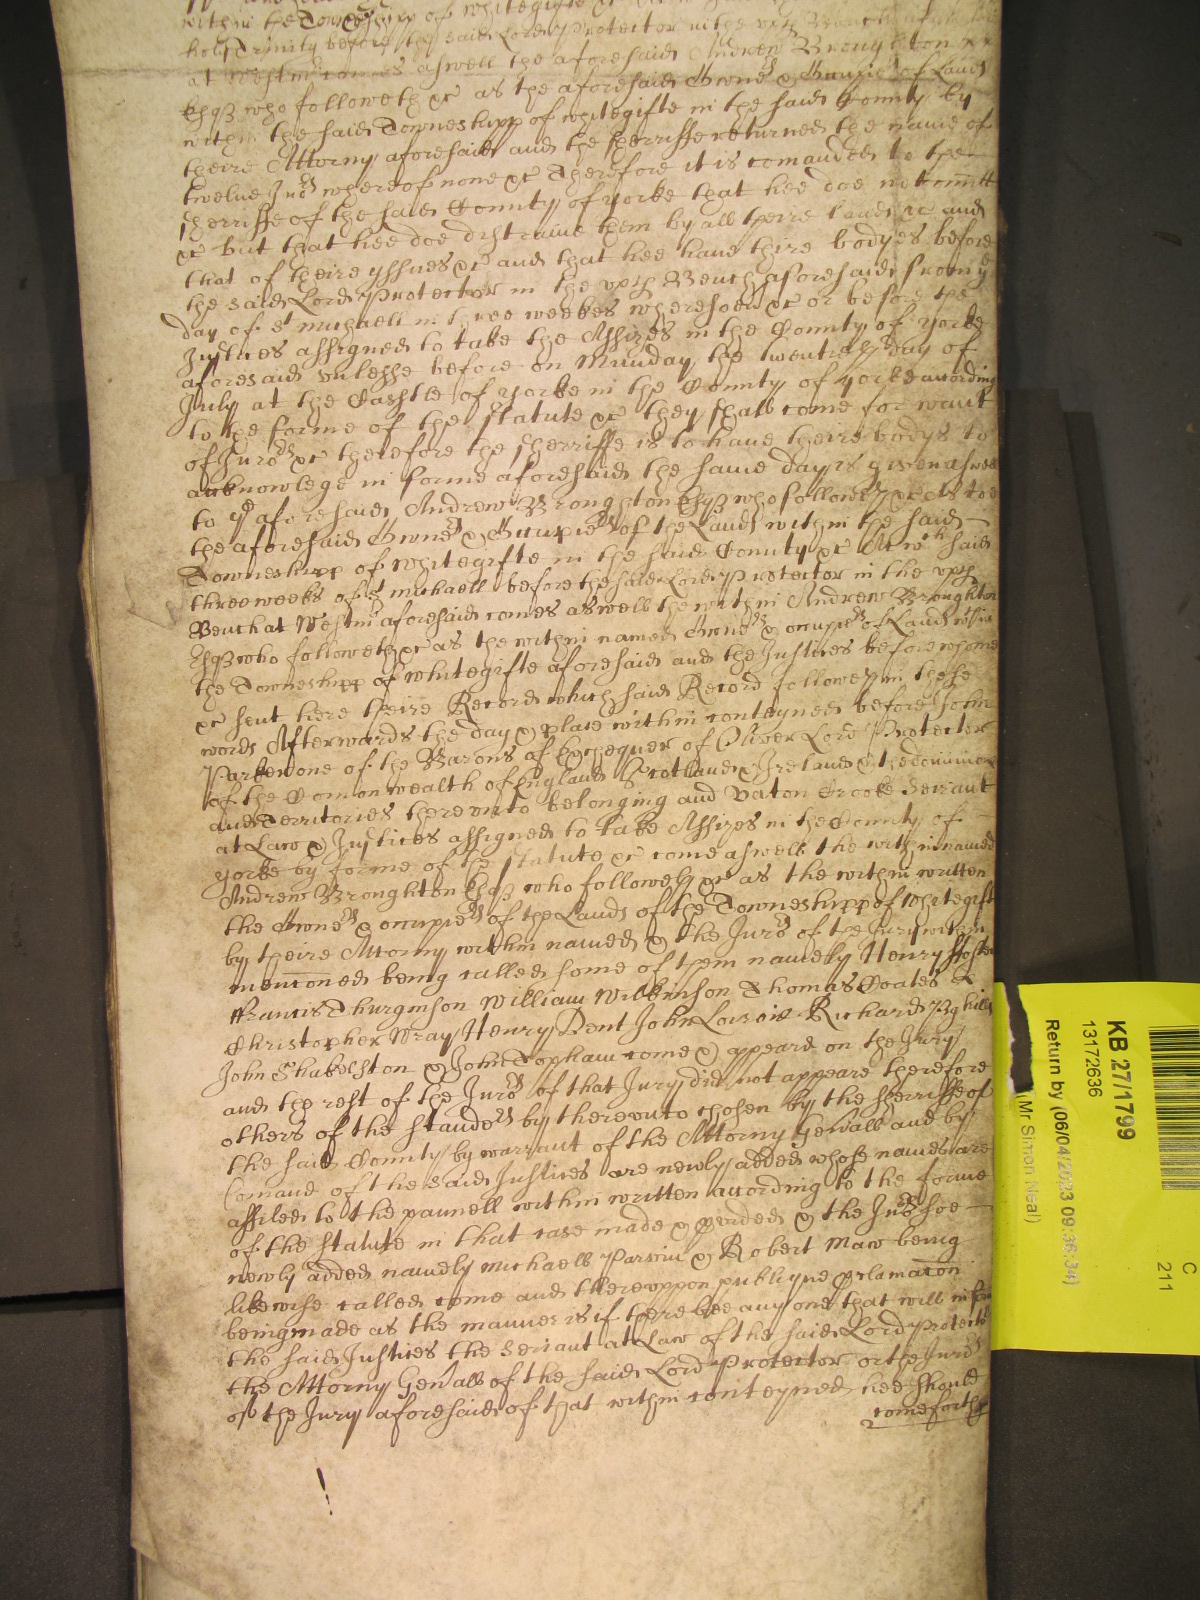 within the Towneshipp of whitegifte
holy Trinity before the said Lord Protector in the upp Bench
at Westm comes aswell the aforesaid Andrew Broughton
Esqß who followeth &c as the aforesaid Owners & Occupiers of Lands
within the said Towneshipp of whitegifte in the said County by
theire Attorny aforesaid and the sherriffe returned the name of
twelve Jurors whereof none &c Therefore it is comanded to the
sherriffe of the said County of yorke that hee doe not omitt
&c but that hee doe distraine them by all theire lands &c and
that of theire yssues &c and that hee have thire bodyes before
the said Lord Protector in the upp Bench aforesaid from ye
day of St michaell in three weekes wheresoev &c or before the
Justices assigned to take the Assizes in the County of yorke
aforesaid unlesse before on Munday the day of
July at the Casstle of yorke in the County of yorke according
to the forme of the statute &c they shall come for want
of Jurors &c therefore the sherriffe is to have theire bodys to
acknowlege in forme aforesaid the same day is given aswell
to ye aforesaid Andrew Broughton Esqß who followeth &c As to
the aforesaid Owners & Occupiers of the Lands within the said
Towneshipp of whitegifte in the said County &c At wch said
three weeks of St michaell before the said Lord Protector in the upp
Bench at Westm aforesaid comes aswell the within Andrew Broughton
Esqß who followeth &c as the within named Owners & occupiers of Lands within
the Towneshipp of whitegifte aforesaid and the Justices before whome
&c sent here theire Record which said Record followeth in these
words Afterwards the day & place within conteyned before John
Parker one of the Barons of Exchequer of Oliver Lord Protector
of the Comonwealth of England Scotland & Ireland & the dominions
and Territories thereunto belonging and Unton Crooke Seriant
at Law & Justices assigned to take Assizes in the County of
yorke by forme of the statute &c come aswell the within named
Andrew Broughton Esqß who followeth &c as the within written
the Owners & occupiers of the Lands of the Towneshipp of whitegift
by theire Attorny within named & the Jurors of the Jury within
mencioned being called some of them namely Henry ffoster
ffrancis Thurginson William Wilkinson Thomas Coates
Christopher Wray Henry Dent John Richard
John Shakelston & John Topham come & appeare on the Jury
and the rest of the Jurors of that Jury did not appeare therefore
others of the standers by thereunto chosen by the sherriffe of
the said County by warrant of the Attorny Generall and by
Comand of the said Justices are newly added whose names are
affiled to the pannell within written according to the forme
of the statute in that case made & pvided & the Jurors soe
newly added namely michaell Parvin & Robert maw being
likewise called come and thereuppon publique pclamacon
being made as the manner is if there bee any one that will informe
the said Justices the Seriant at Law of the said Lord Protector
the Attorny Genall of the said Lord Protector or the Jurors
of the Jury aforesaid of that within conteyned hee should
come forth &
KB 27/1799
13172636
Return by (06/04/2023 09:36:34)
(Mr Simon Neal)
C
211